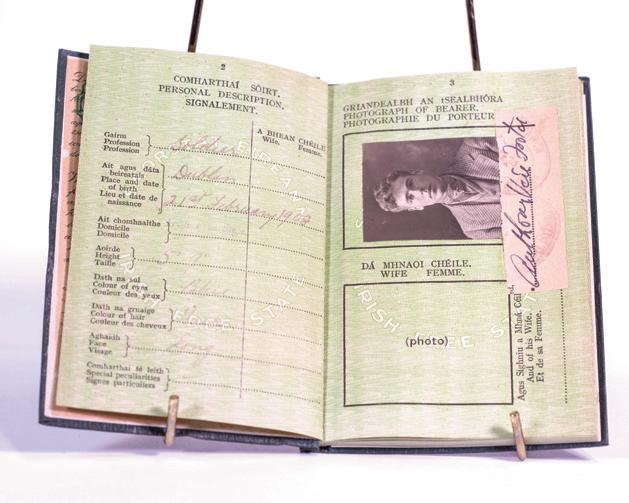 2
COMHARTHAÍ SÓIRT.
PERSONAL DESCRIPTION.
SIGNALEMENT.
A BHEAN CHÉILE
Wife. Femme.
Gairm
Profession
Profession
Soldier
Áit agus dáta
beireatais
Place and date
of birth
Lieu et date de
naissance
Dublin
21st February 1903
Áit chomhnaithe
Domicile
Domicile
Aoirde
Height
Taille
5' 7"
Dath na súl
Colour of eyes
Couleur des yeux
Dath na gruaige
Colour of hair
Couleur des cheveux
Aghaidh
Face
Visage
Comharthaí fé leith
Special peculiarities
Signes particuliers
3
GRIANDEALBH AN tSEALBHÓRA
PHOTOGRAPH OF BEARER.
PHOTOGRAPHIE DU PORTEUR
DÁ MHNAOI CHÉILE.
WIFE FEMME.
(photo)
Agus Sighniu a Mhná Céile.
And of his Wife.
Et de sa Femme.
IRISH FREE STATE